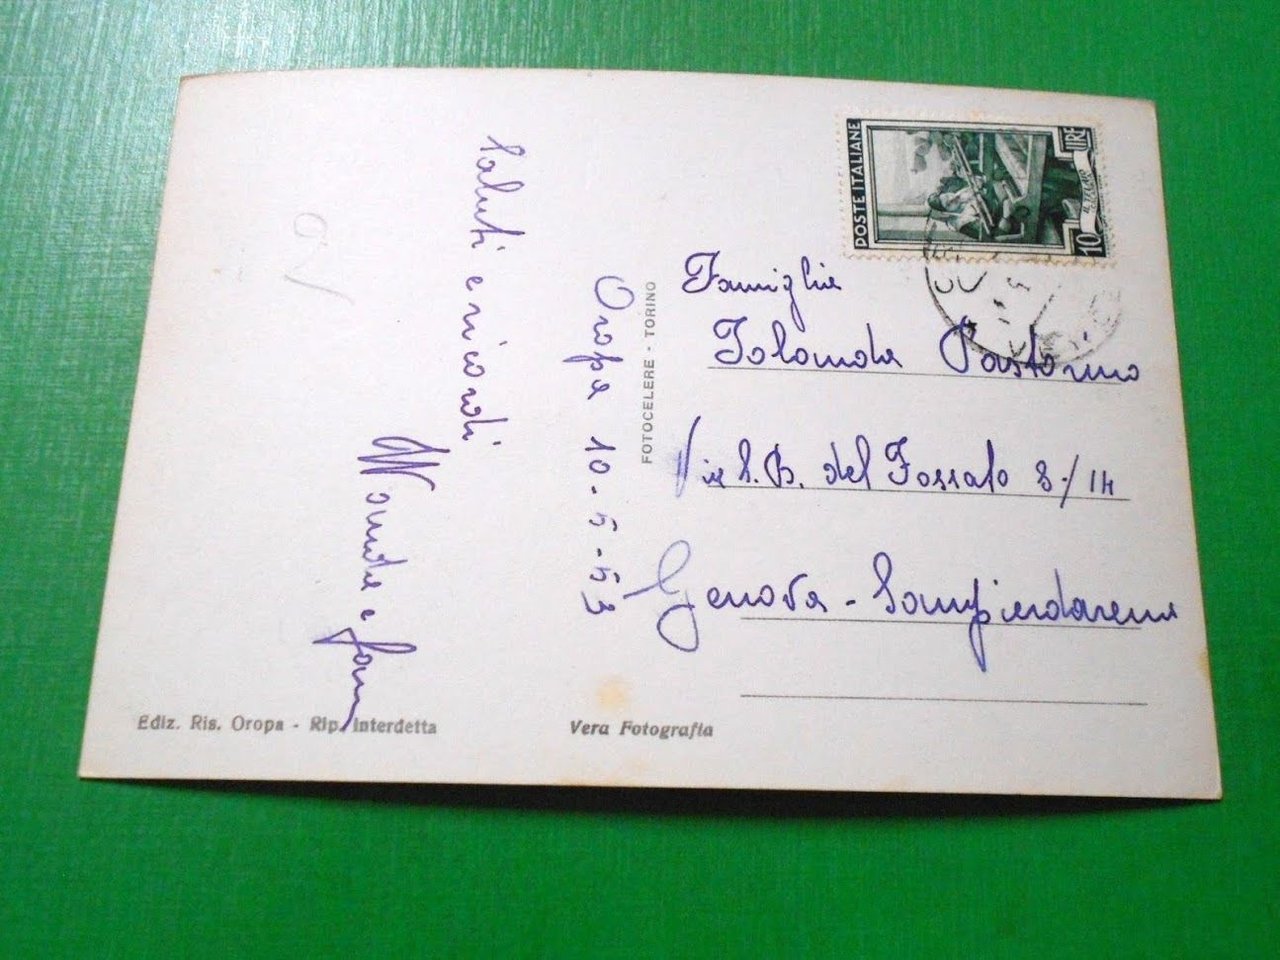 Saluti e ricordi
Wanda e fam
Oropa 10-5-53
Ediz. Ris. Oropa - Rip. Interdetta
FOTOCELERE - TORINO
Vera Fotografia
POSTE ITALIANE
10 LIRE
Famiglia
Iolanda Pastorino
Via S.B. del Fossato 8/14
Genova - Sampierdarena